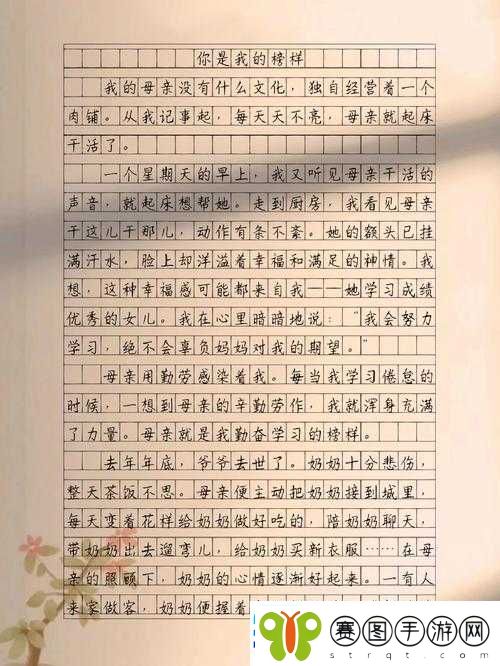 你是我的榜样
我的母亲没有什么文化，独自经营着一个
肉铺。从我记事起，每天天不亮，母亲就起床
干活了。
一个星期天的早上，我又听见母亲干活的
声音，就起床想帮她。走到厨房，我看见母亲
干这儿干那儿，动作有条不紊。她的额头已挂
满汗水，脸上却洋溢着幸福和满足的神情。我
想，这种幸福感可能都来自我——她学习成绩
优秀的女儿。我在心里暗暗地说：“我会努力
学习，绝不会辜负妈妈对我的期望。”
母亲用勤劳感染着我。每当我学习倦怠的
时候，一想到母亲的辛勤劳作，我就浑身充满
了力量。母亲就是我勤奋学习的榜样。
去年年底，爷爷去世了。奶奶十分悲伤，
整天茶饭不思。母亲便主动把奶奶接到城里，
每天变着花样给奶奶做好吃的，陪奶奶聊天，
带奶奶出去遛弯儿，给奶奶买新衣服……在母
亲的照顾下，奶奶的心情逐渐好起来。一有人
来家做客，奶奶便握着
赛图手游网
strqt.com